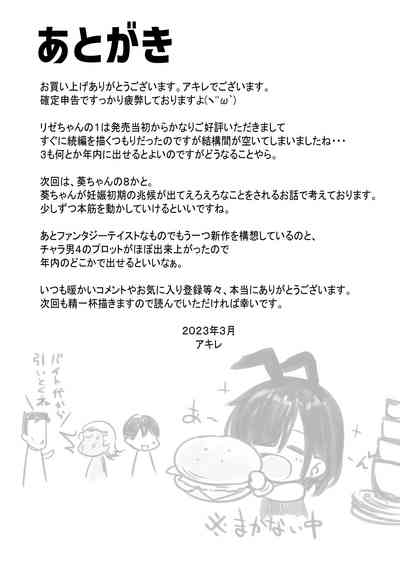 あとがき
お買い上げありがとうございます。アキレでございます。
確定申告ですっかり疲弊しておりますよ(ヽ´ω`)
リゼちゃんの1は発売当初からかなりご好評いただきまして
すぐに続編を描くつもりだったのですが結構間が空いてしまいましたね・・・
3も何とか年内に出せるとよいのですがどうなることやら。
次回は、葵ちゃんの8かと。
葵ちゃんが妊娠初期の兆候が出てえろえろなことをされるお話で考えております。
少しずつ本筋を動かしていけるといいですね。
あとファンタジーテイストなものでもう一つ新作を構想しているのと、
チャラ男4のプロットがほぼ出来上がったので
年内のどこかで出せるといいなぁ。
いつも暖かいコメントやお気に入り登録等々、本当にありがとうございます。
次回も精一杯描きますので読んでいただければ幸いです。
2023年3月
アキレ
バイト代から
引いとくね
あ～
ん
※まかない中